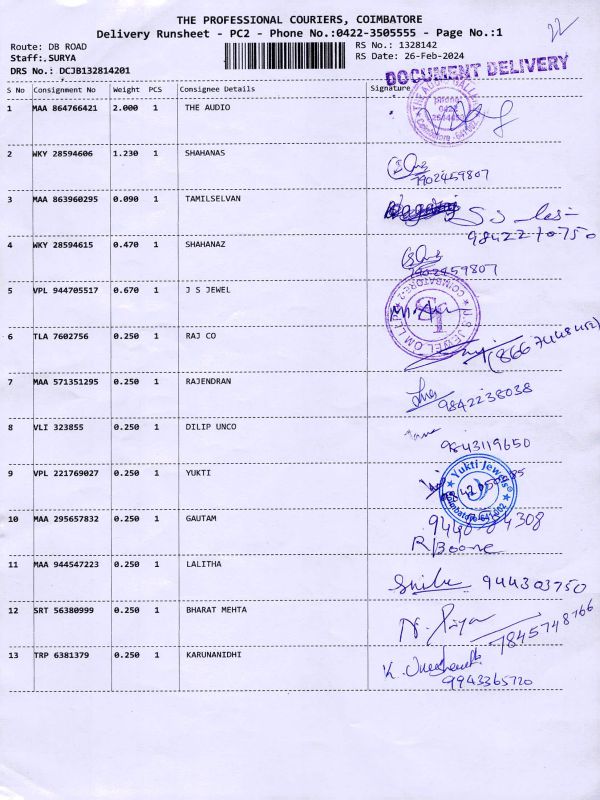 THE PROFESSIONAL COURIERS, COIMBATORE
Delivery Runsheet - PC2 - Phone No.:0422-3505555 - Page No.:1
22
Route: DB ROAD RS No.: 1328142
Staff:.SURYA RS Date: 26-Feb-2024
DRS No.: DCJB132814201 DOCUMENT DELIVERY
S No Consignment No Weight PCS Consignee Details Signature
1 MAA 864766421 2.000 1 THE AUDIO
2 WKY 28594606 1.230 1 SHAHANAS
7902459807
3 MAA 863960295 0.090 1 TAMILSELVAN
9842270750
4 WKY 28594615 0.470 1 SHAHANAZ
7902459807
5 VPL 944705517 0.670 1 J S JEWEL
J.S. JEWEL COIMBATORE-2
6 TLA 7602756 0.250 1 RAJ CO
7 MAA 571351295 0.250 1 RAJENDRAN
9842238038
8 VLI 323855 0.250 1 DILIP UNCO
9843119650
9 VPL 221769027 0.250 1 YUKTI
Yukti Jewels
Coimbatore 641 002
10 MAA 295657832 0.250 1 GAUTAM
11 MAA 944547223 0.250 1 LALITHA
944303750
12 SRT 56380999 0.250 1 BHARAT MEHTA
N. Priya 7845748766
13 TRP 6381379 0.250 1 KARUNANIDHI
9943365720